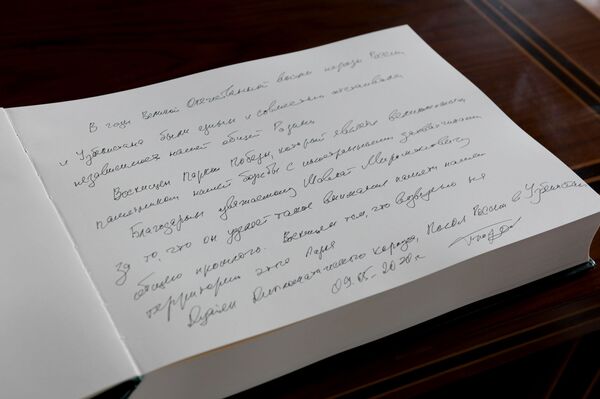 В годы Великой Отечественной войны народы России
и Узбекистана были едины и совместно отстаивали
независимость нашей общей Родины.
Восхищен Парком Победы, который является великолепным
памятником нашей борьбы с иностранными захватчиками
Благодарны уважаемому Шавкат Миромоновичу
За то, что он уделяет такое внимание памяти нашего
общего прошлого. Восхищен тем, что воздвигнуто на
территории этого Парка
Дуайен Дипломатического корпуса, Посол России в Узбекистане
09.05-2020 г.